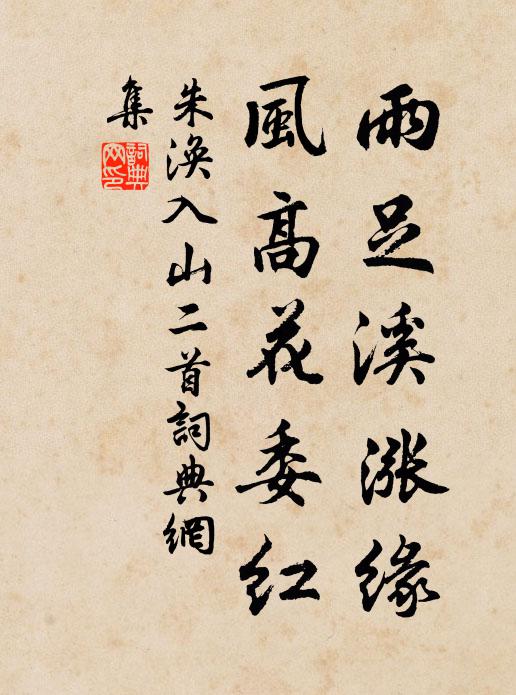 雨足溪漲缘
風高花委红
朱渙入山二首詞典網
集
詞典
網印